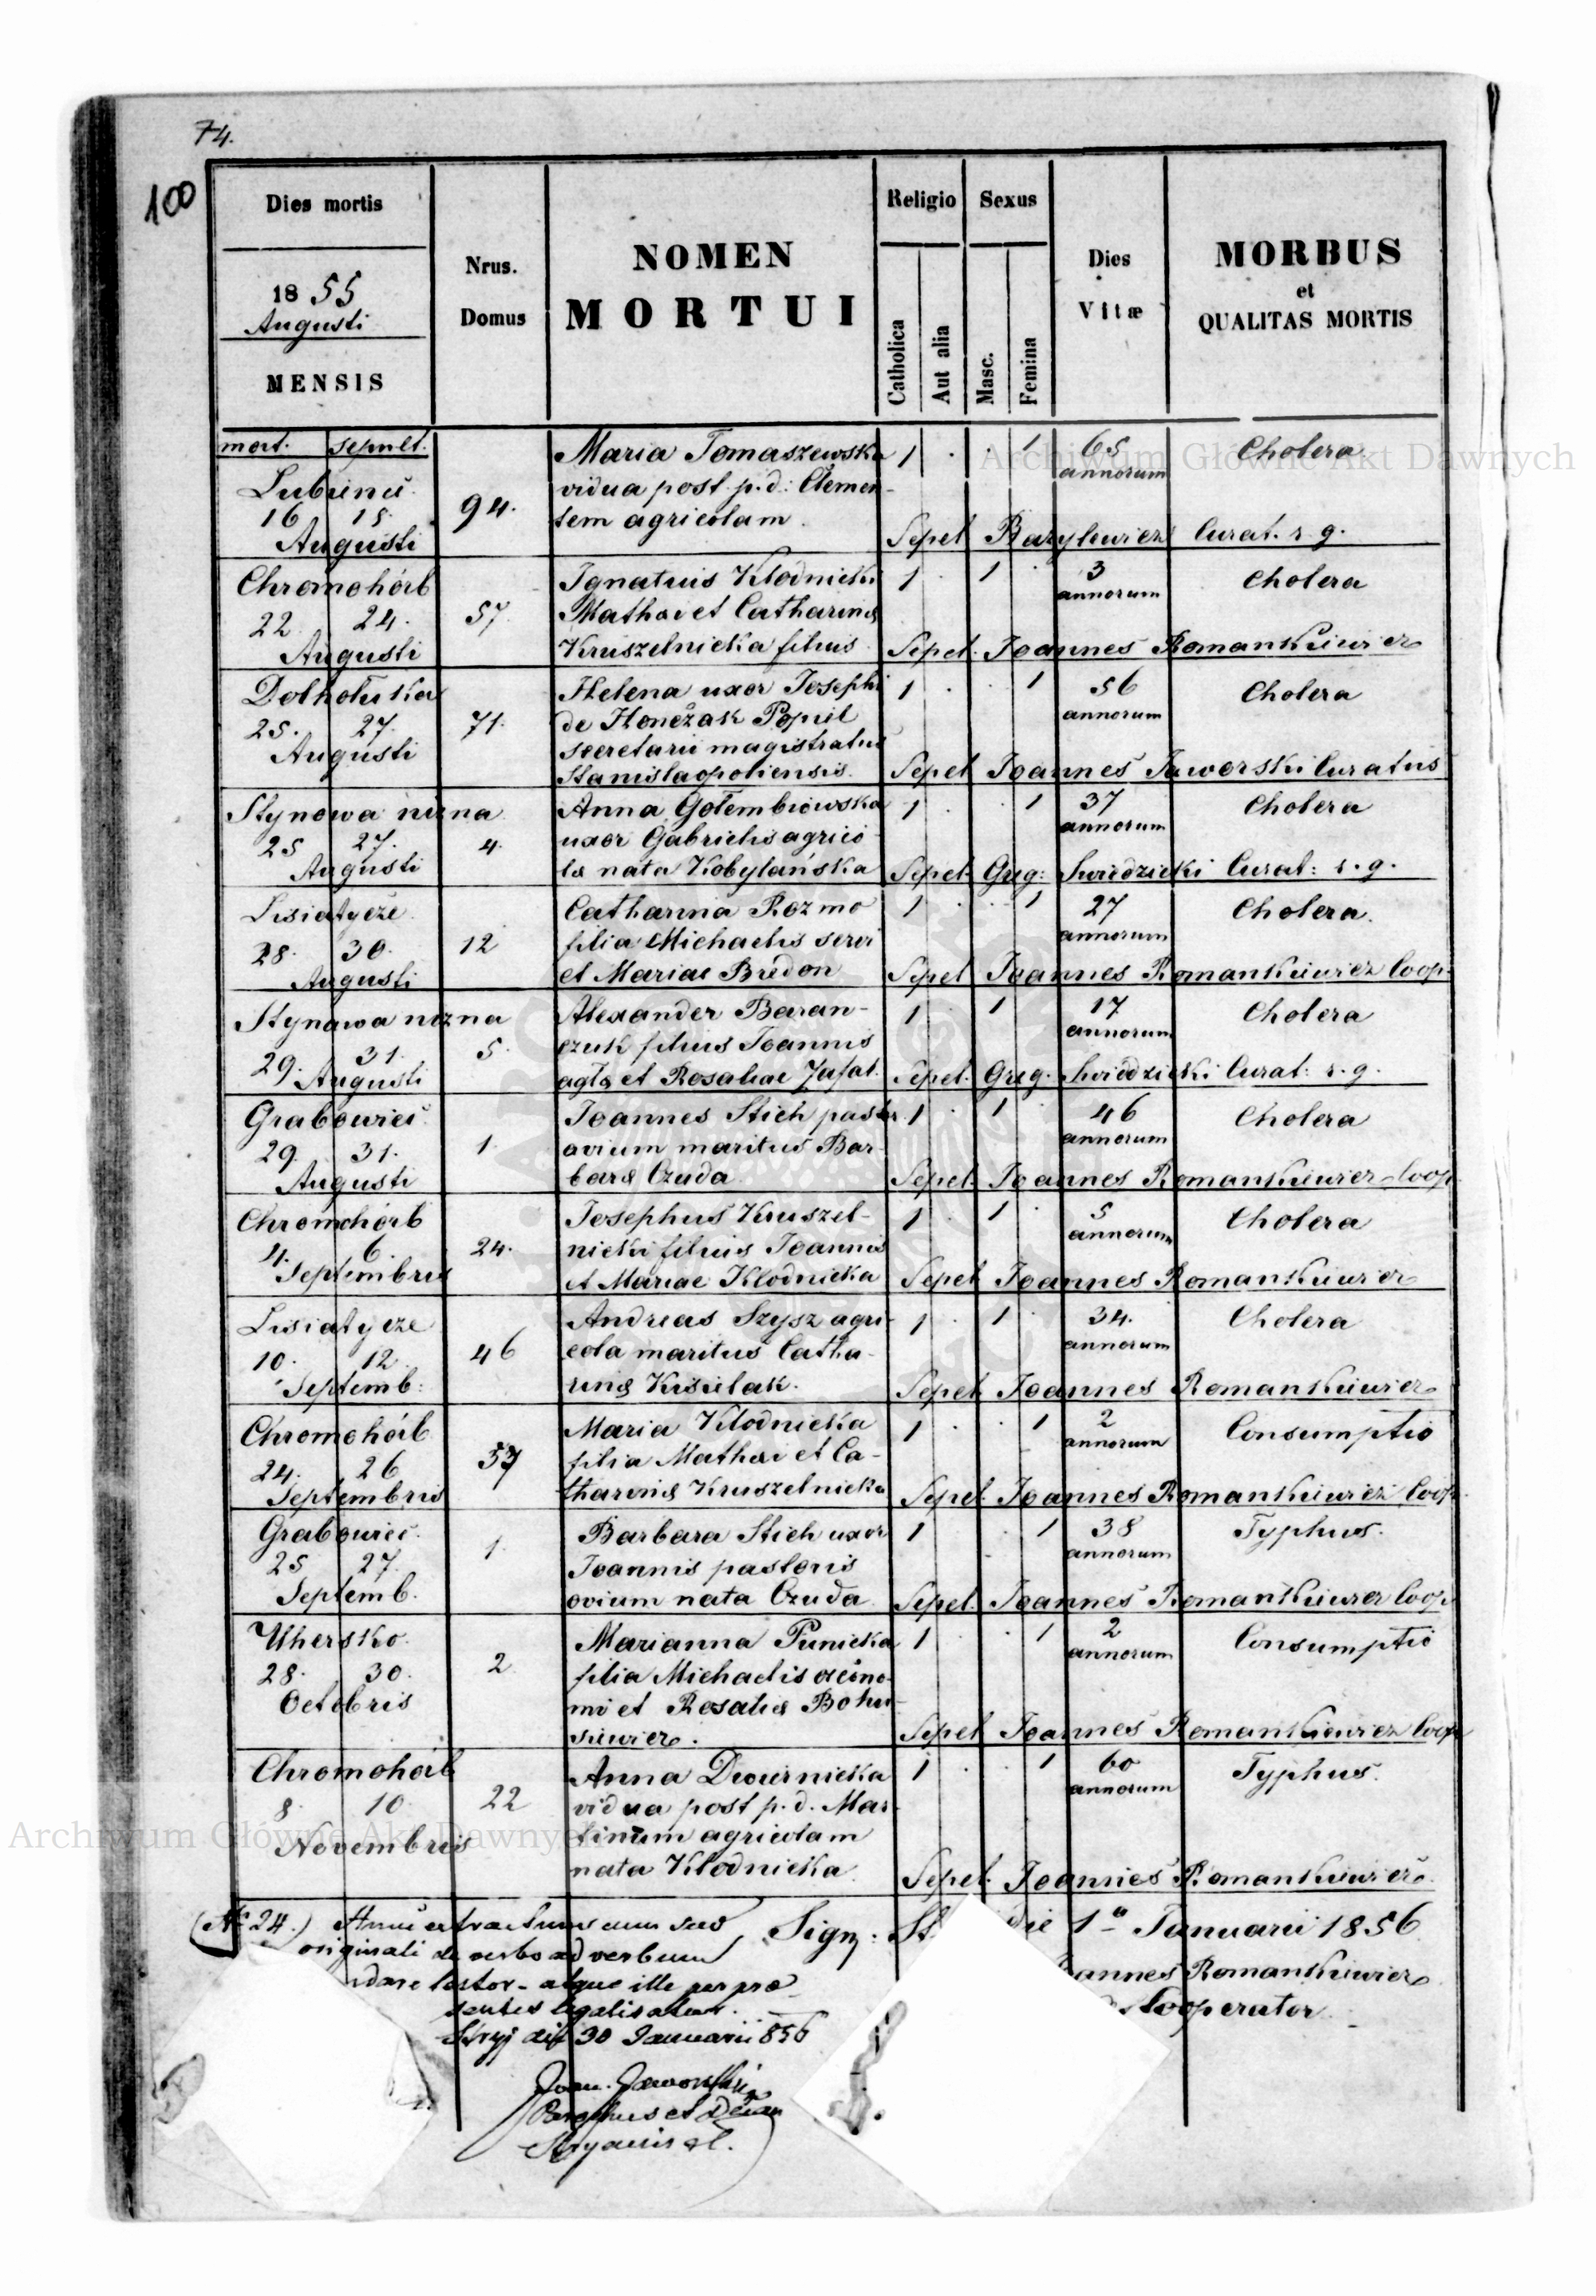 74.
100
Dies mortis
1855
Augusti
MENSIS
Nrus.
Domus
NOMEN
MORTUI
Religio
Catholica
Aut alia
Sexus
Masc.
Femina
Dies
Vitæ
MORBUS
et
QUALITAS MORTIS
Archiwum Główne Akt Dawnych
mort. sepult.
Maria Tomaszewska 1 . . 1 65 Cholera
annorum
94. vidua post p. d: Clemen-
16 18 tem agricolam
Augusti Sepel Bazylewicz Curat. r. g.
Chromohórb Ignatius Kłodnicki 1 . 1 . 3 Cholera
annorum
22 24. 57. Mathæi et Catharinæ
Augusti Kruszelnicka filius Sepel. Joannes Romankiewicz
Dołhołuka Helena uxor Josephi 1 . . 1 56 Cholera
annorum
25. 27. 71. de Popiel
Augusti secretarii magistratus
Stanislaopoliensis. Sepel Joannes Jaworski Curatus
Stynowa nizna Anna Gołembiowska 1 . . 1 37 Cholera
annorum
25 27. 4. uxor Gabrielis agrico-
Augusti læ nata Kobylańska Sepel. Greg: Curat: r. g.
Lisiatycze Catharina Rozmo 1 . . 1 27 Cholera.
annorum
28. 30. 12 filia Michaelis servi
Augusti et Mariae Bredon Sepel Joannes Romankiewicz Coop.
Stynawa nizna Alexander Baran- 1 . 1 . 17 Cholera
annorum
29. 31. 5. czuk filius Joannis
Augusti et Rosaliae Sepel. Greg. Curat: r. g.
Grabowiec Joannes Stich pastor 1 . 1 . 46 Cholera
annorum
29. 31. 1. ovium maritus Bar-
Augusti baræ Czuda Sepel. Joannes Romankiewicz Coop.
Chromohórb Josephus Kruszel- 1 . 1 . 5 Cholera
annorum
4. 6. 24. nicki filius Joannis
Septembris et Mariae Kłodnicka Sepel Joannes Romankiewicz
Lisiatycze Andreas Szysz agri- 1 . 1 . 34. Cholera
annorum
10. 12. 46 cola maritus Catha-
Septemb: rinæ Kisielak. Sepel Joannes Romankiewicz
Chromohórb Maria Kłodnicka 1 . . 1 2 Consumptio
annorum
24. 26 57 filia Mathæi et Ca-
Septembris tharinæ Kruszelnicka Sepel. Joannes Romankiewicz Coop.
Grabowiec Barbara Stich uxor 1 . . 1 38 Typhus.
annorum
25 27. 1. Joannis pastoris
Septemb. ovium nata Czuda Sepel. Joannes Romankiewicz Coop.
Uhersko. Marianna Punicka 1 . . 1 2 Consumptio
annorum
28. 30. 2. filia Michaelis œcono-
Octobris mi et Rosaliæ Bohu-
siewicz. Sepel Joannes Romankiewicz Coop.
Chromohórb Anna Dwernicka 1 . . 1 60 Typhus.
annorum
8. 10. 22 vidua post p. d. Mar-
Novembris tinum agricolam
nata Kłodnicka Sepel. Joannes Romankiewicz.
Archiwum Główne Akt Dawnych
(N 24.) cum suo Sign: St die 1ª Januarii 1856
originali de verbo ad verbum
testor - atque ille per præ- oannes Romankiewicz
sentes legalisatur. Cooperator
Stryj die 30 Januarii 856
Joan. Jaworski
Parochus et Decan